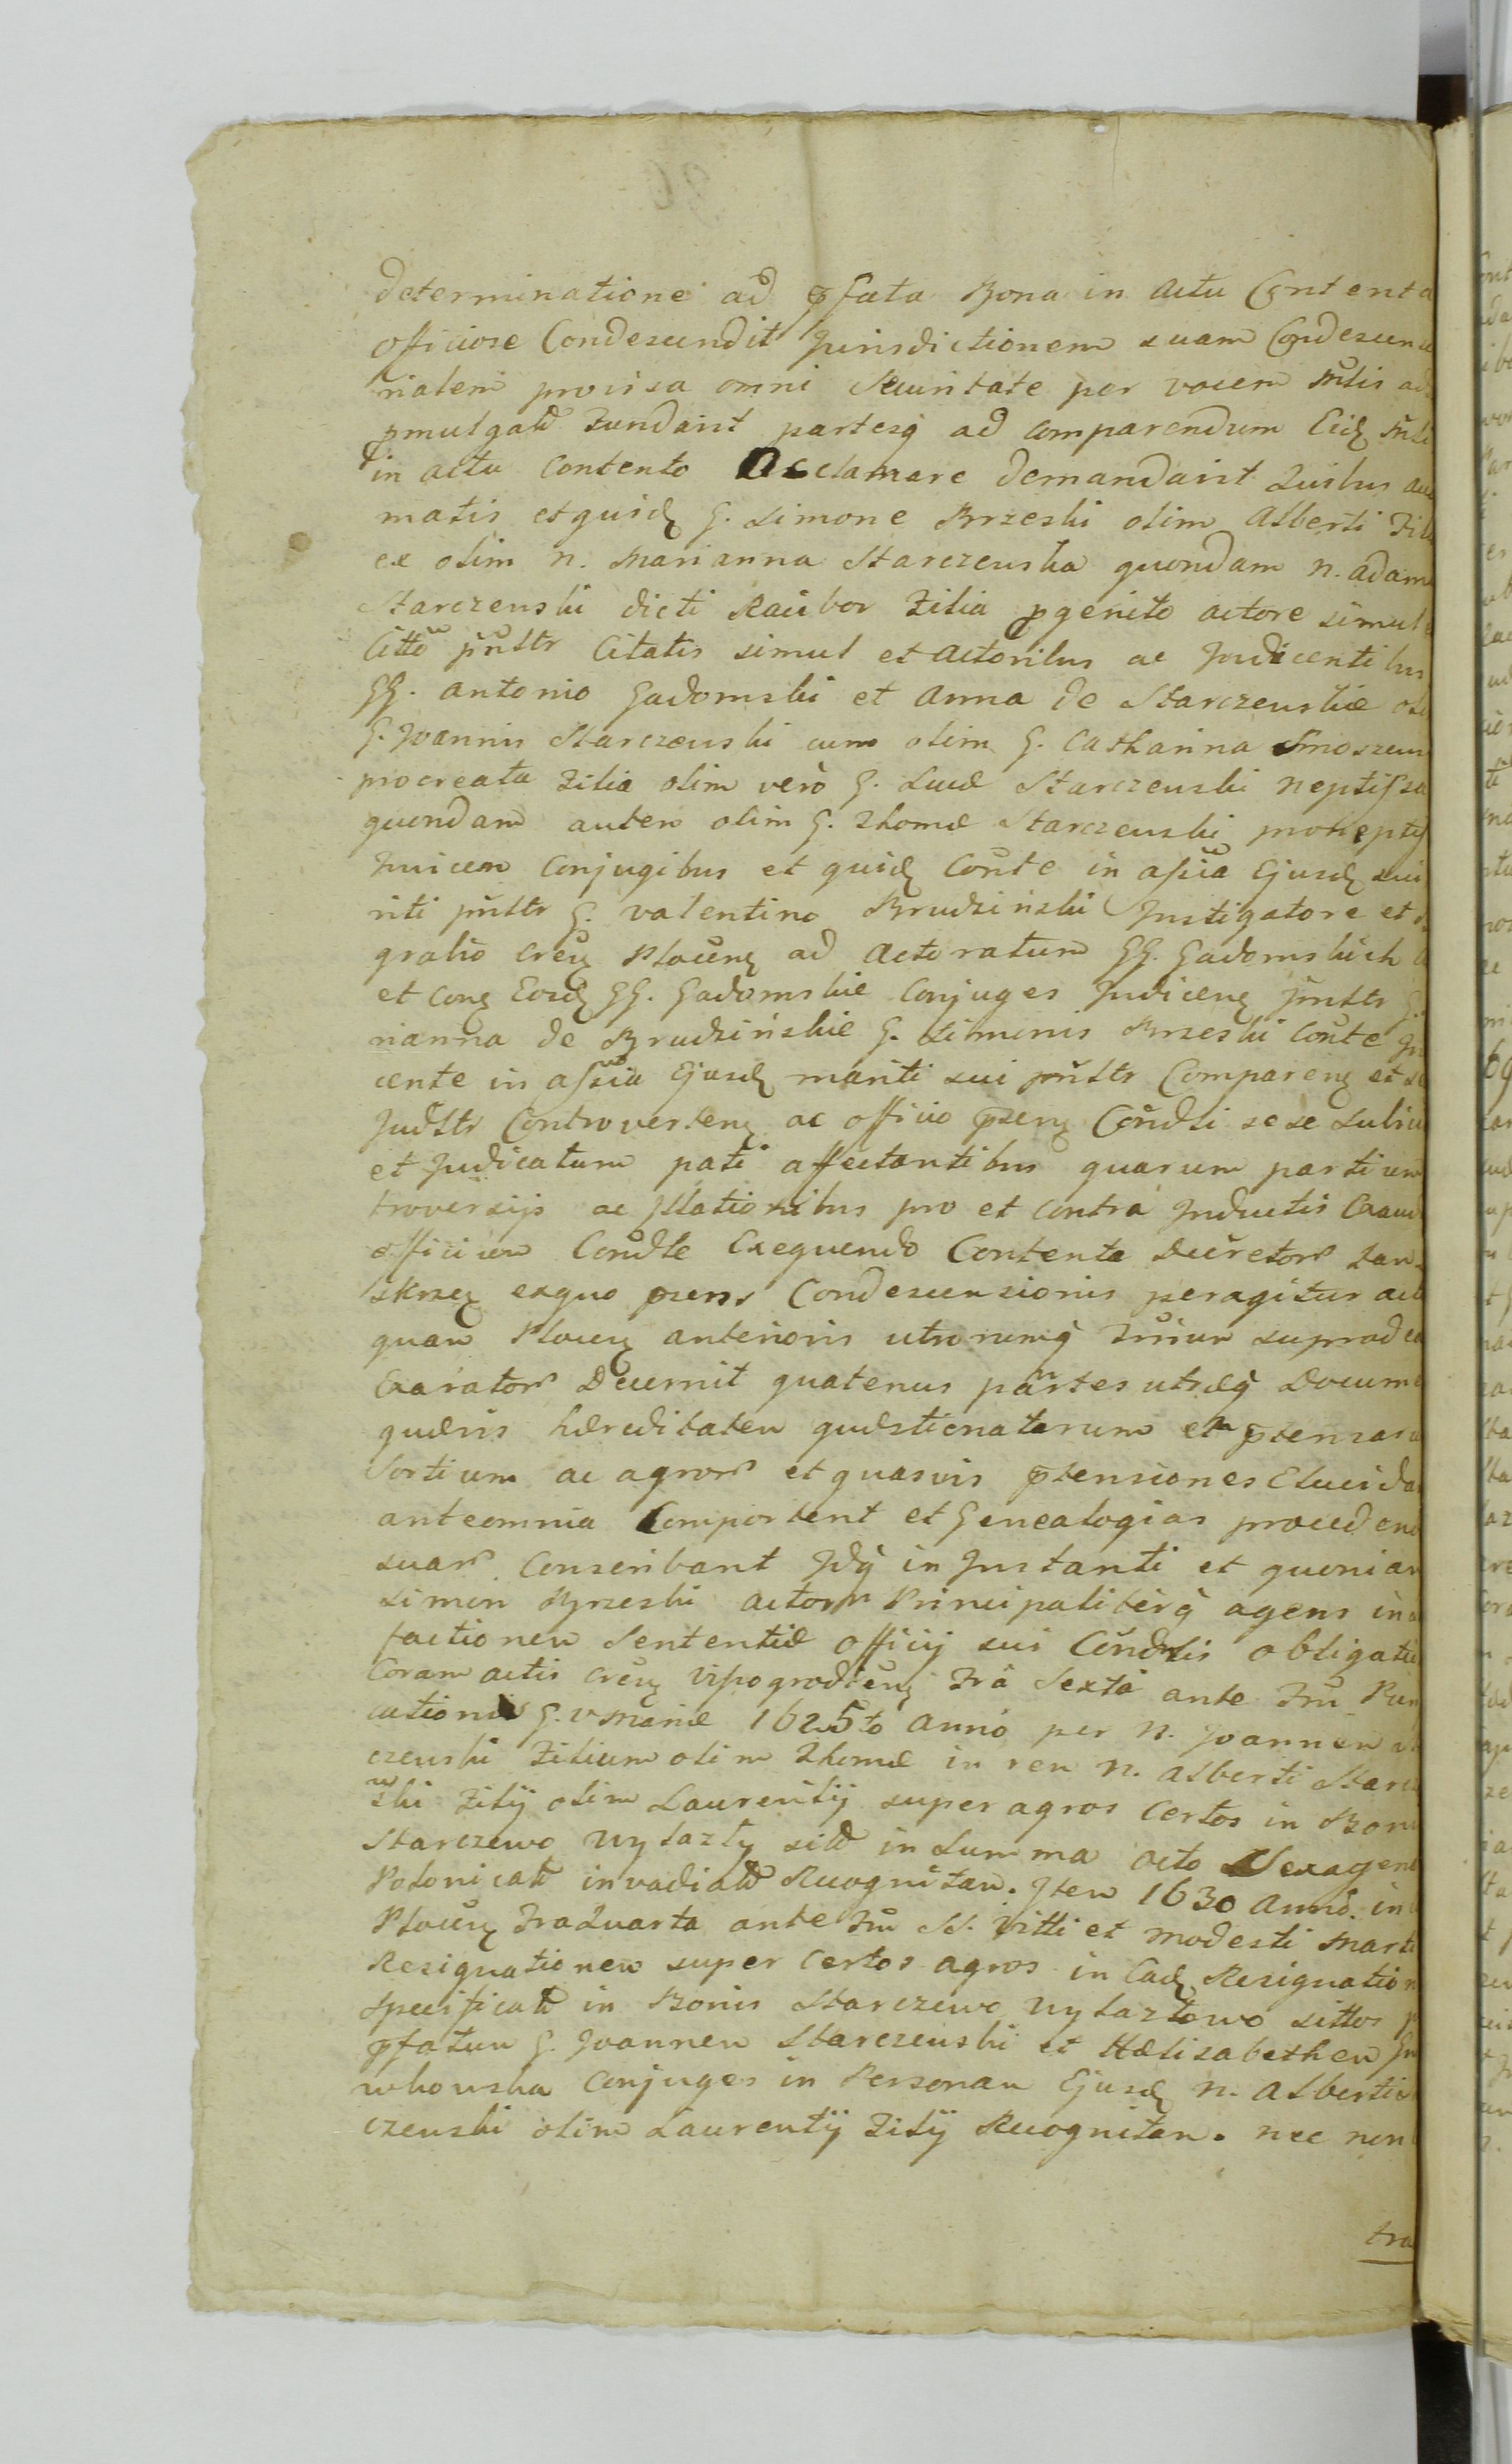 determinatione ad pfata Bona in actu Contenta
officiose Condescendit Jurisdictionem suam Condescen
rialem provisa omni Securitate per vocem Mtlis
pmulgatt Fundavit partesq ad comparendum Eidq
in actu contento Acclamare demandavit Quibus
matis et quidq G. Simone Brzeski olim Alberti Fili
ex olim N. Marianna Starczewska quondam N. Adam
Starczewski dicti Racibor Filia pgenito actore simul
Citto pnttr Citatis simul et Actoribus ac Judicentibus
GG. Antonio Gadomski et Anna de Starczewskie
G. Joannis Starczewski cum olim G. Catharina Smoszew
procreata Filia olim vero G. Lucæ Starczewski Neptissa
quondam autem olim G. Thomæ Starczewski proneptis
Invicem Conjugibus et quidq Conte in assia Ejusdq
riti pnttr G. Valentino Brudzinski Instigatore et
gralio Creuq Plocenq ad Actoratum GG. Gadomskich
et Conq Eosdq GG. Gadomskie Conjuges Judicenq pnttr G.
rianna de Brudzinskie G. Simonis Brzeski Conte
cente in assia Ejusdq mariti sui pnttr Comparenq et
Judttr Controvertenq ac officio psenq Condli se se
et Judicatum pati affectantibus quarum partium
troversijs ac Illationibus pro et contra Inductis
officium Condle Exequendo Contenta Decretorr
Skrzq exquo psens Condescensionis peragitur
quam Plocenq anterioris utrorumq
Exaratorr Decernit quatenus partes utræq Docum
quævis hæreditatem quæstionatarum et ptensar
Sortium ac agrorr et quasvis ptensiones Elucida
anteomnia Comportent et Genealogias proced
suarr Conscribant Idq in Instanti et quoniam
Simon Brzeski actorr Principaliterq agens in
factionem Sententiæ officij sui Condlis obligatt
Coram actis Creuq Wyszogrodienq Fra Sexta ante Fm
cationis G. V Mariæ 1625to anno per N. Joannem
czewski Filium olim Thomæ in rem N. Alberti Starcz
wski Filij olim Laurentij super agros Certos in Bonis
Starczewo Wylazly sitt in Summa octo Sexagena
Polonicatt invadiatt Recognitam. Item 1630 anno. in
Plocenq Fra Quarta ante Fm SS. Vitti et Modesti Marti
Resignationem super Certos agros in Eadq Resignation
specificatt in Bonis Starczewo Wylazlowo sittos
pfatum G. Joannem Starczewski et Hælisabethem
whowska Conjuges in Personam Ejusdq N. Alberti
czewski olim Laurentij Filij Recognitam. nec non
tra